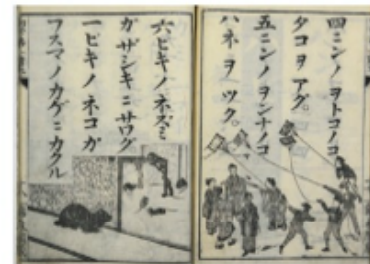 四ニンノヲトコノコ
タコヲアグ。
五ニンノヲンナノコ
ハネヲツク。
六ピキノネズミ
ガザシキニサワグ
一ピキノネコガ
フスマノカゲニカクル